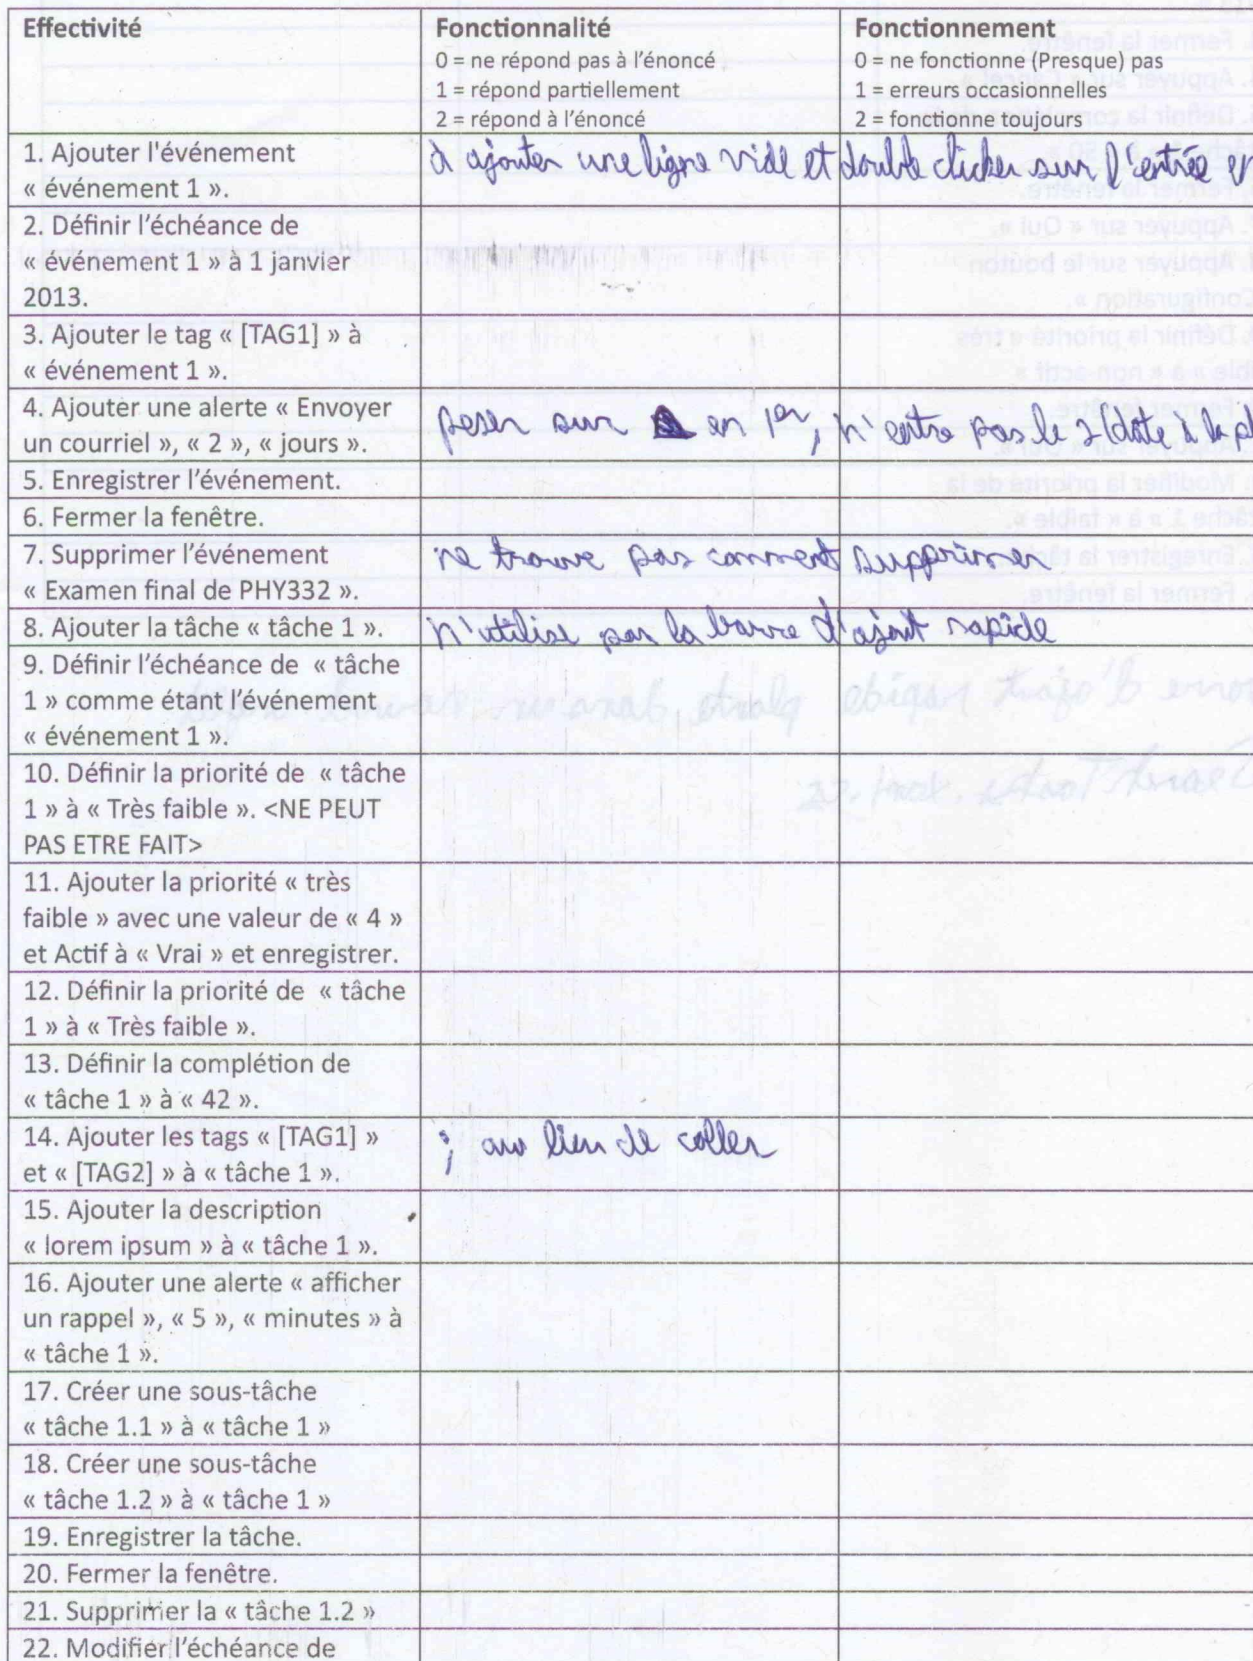 Effectivité
Fonctionnalité
0 = ne répond pas à l'énoncé
1 = répond partiellement
2 = répond à l'énoncé
Fonctionnement
0 = ne fonctionne (Presque) pas
1 = erreurs occasionnelles
2 = fonctionne toujours
1. Ajouter l'événement
« événement 1 ».
à ajouter une ligne vide et double clicker sur l'entrée
2. Définir l'échéance de
« événement 1 » à 1 janvier
2013.
3. Ajouter le tag « [TAG1] » à
« événement 1 ».
4. Ajouter une alerte « Envoyer
un courriel », « 2 », « jours ».
sur en 1er, n'entre pas le 2
5. Enregistrer l'événement.
6. Fermer la fenêtre.
7. Supprimer l'événement
« Examen final de PHY332 ».
ne trouve pas comment supprimer
8. Ajouter la tâche « tâche 1 ».
n'utilise pas la barre d'ajout rapide
9. Définir l'échéance de « tâche
1 » comme étant l'événement
« événement 1 ».
10. Définir la priorité de « tâche
1 » à « Très faible ». <NE PEUT
PAS ETRE FAIT>
11. Ajouter la priorité « très
faible » avec une valeur de « 4 »
et Actif à « Vrai » et enregistrer.
12. Définir la priorité de « tâche
1 » à « Très faible ».
13. Définir la complétion de
« tâche 1 » à « 42 ».
14. Ajouter les tags « [TAG1] »
et « [TAG2] » à « tâche 1 ».
; au lieu de coller
15. Ajouter la description
« lorem ipsum » à « tâche 1 ».
16. Ajouter une alerte « afficher
un rappel », « 5 », « minutes » à
« tâche 1 ».
17. Créer une sous-tâche
« tâche 1.1 » à « tâche 1 »
18. Créer une sous-tâche
« tâche 1.2 » à « tâche 1 »
19. Enregistrer la tâche.
20. Fermer la fenêtre.
21. Supprimer la « tâche 1.2 »
22. Modifier l'échéance de